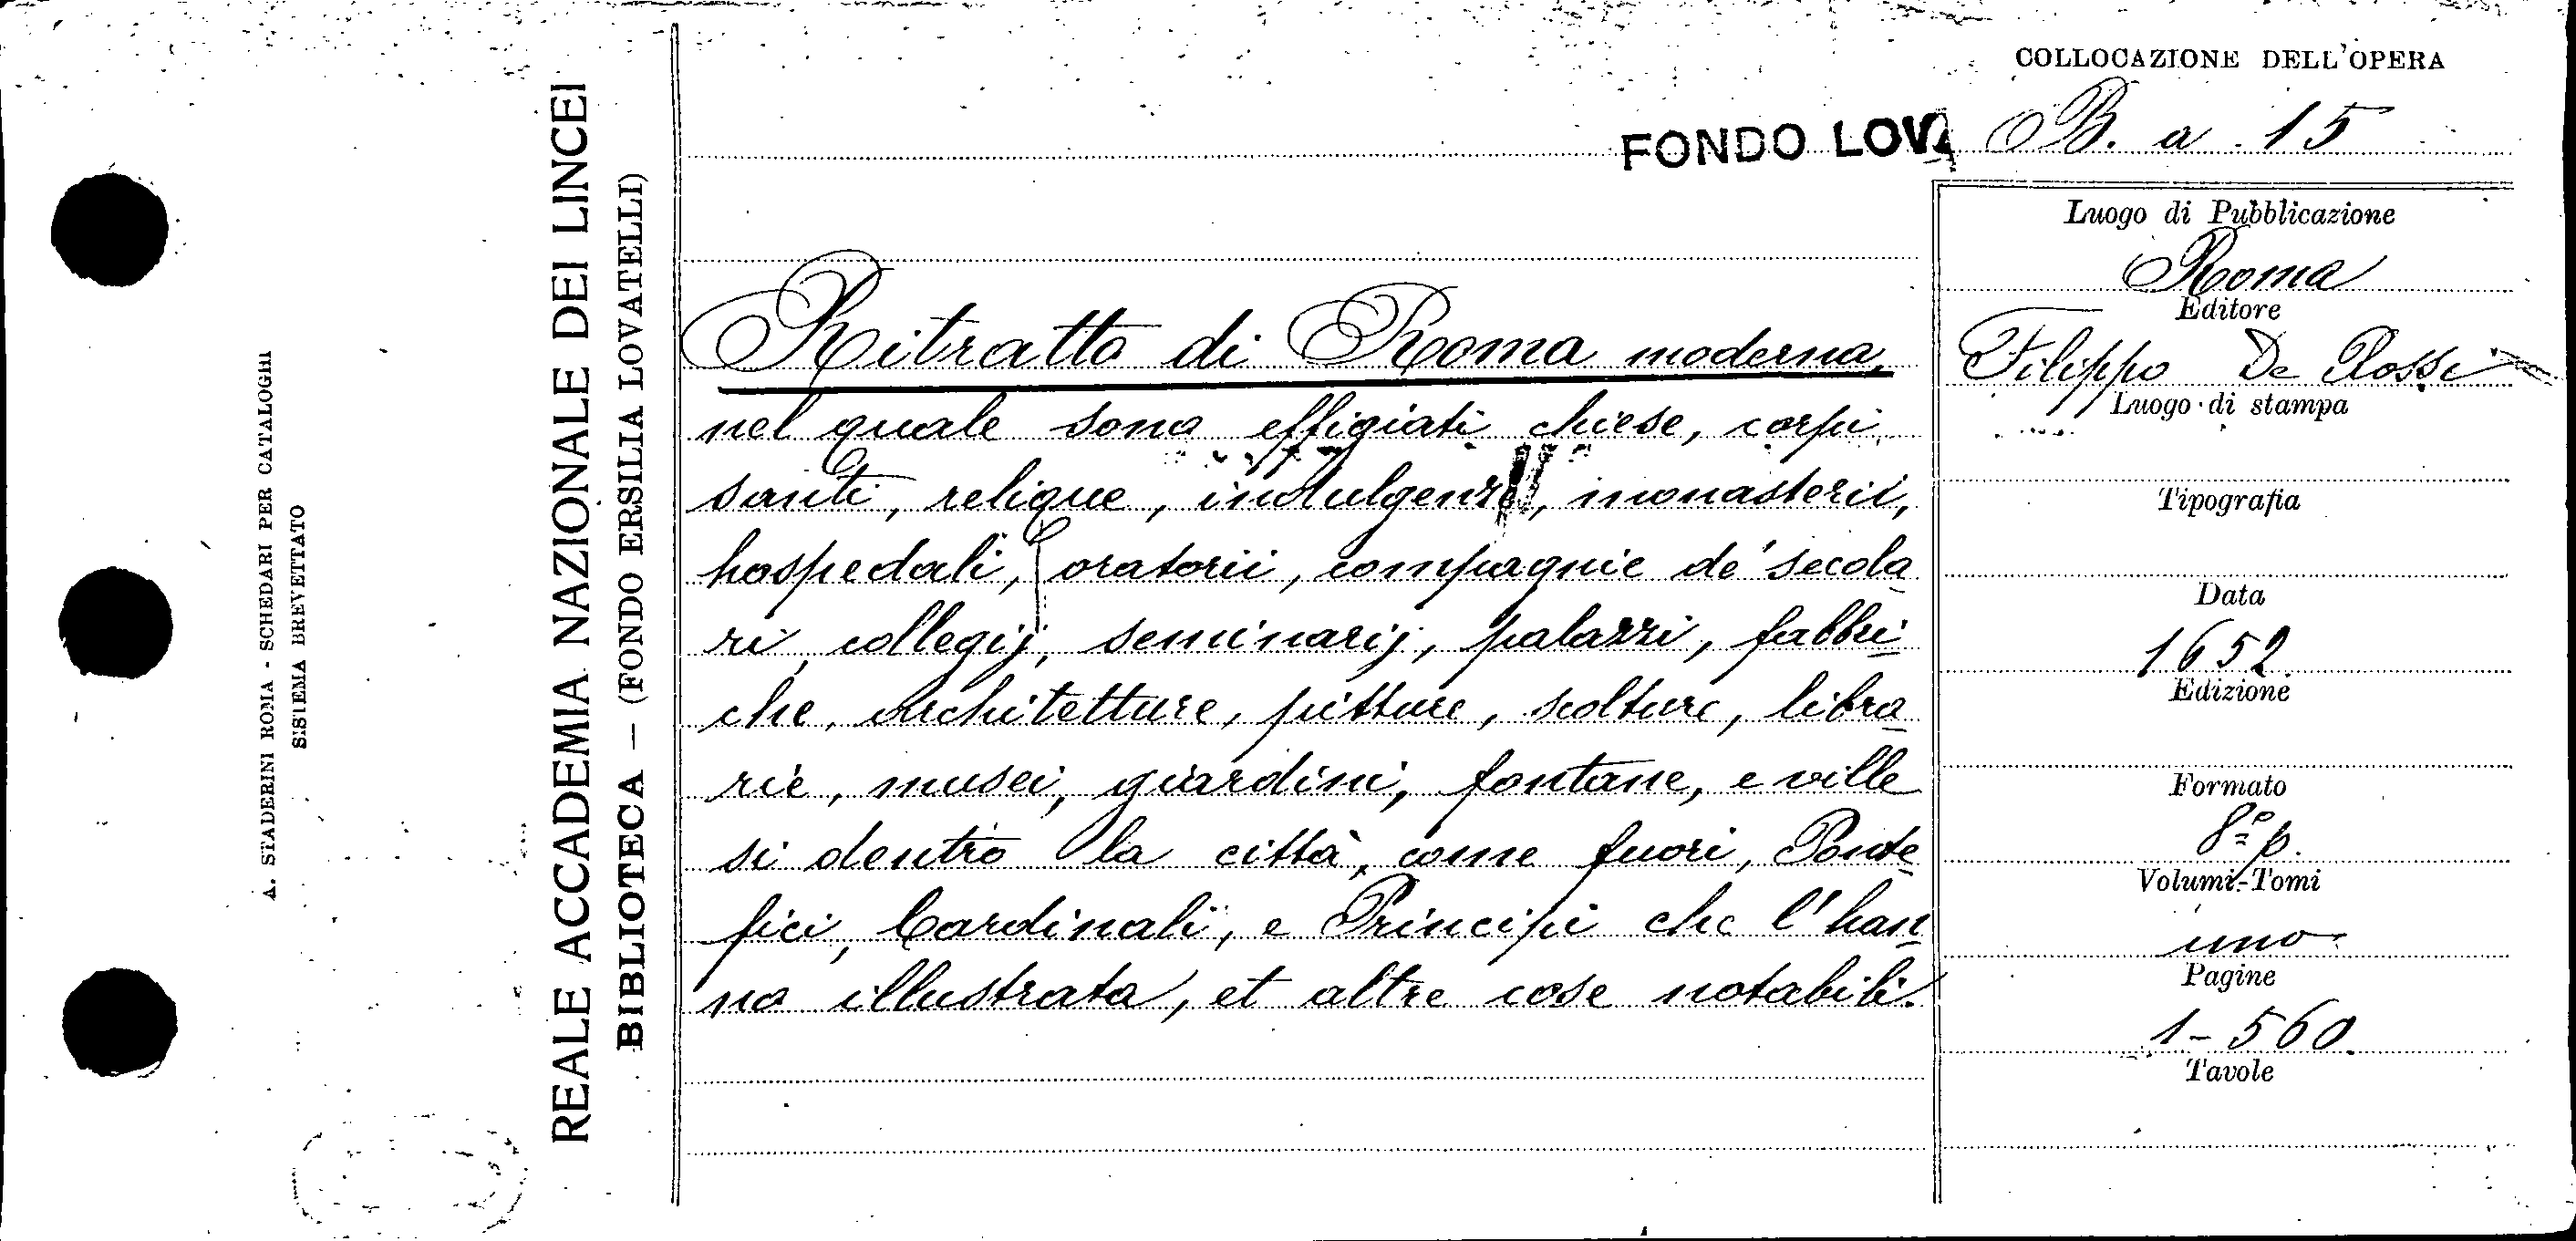 A. STADERINI ROMA - SCHEDARI PER CATALOGHI
SISTEMA BREVETTATO
REALE ACCADEMIA NAZIONALE DEI LINCEI
BIBLIOTECA — (FONDO ERSILIA LOVATELLI)
COLLOCAZIONE DELL'OPERA
FONDO LOVA
B. a. 15
Ritratto di Roma moderna,
nel quale sono effigiati chiese, corpi
santi, relique, indulgenze, monasterii,
hospedali, oratorii, compagnie de' secola
ri, collegij, seminarij, palazzi, fabbri
che, architetture, pitture, scolture, libra
rie, musei, giardini, fontane, e ville
si dentro la città, come fuori, Ponte
fici, Cardinali, e Principi che l'han
no illustrata, et altre cose notabili.
Luogo di Pubblicazione
Roma
Editore
Filippo De Rossi
Luogo di stampa
Tipografia
Data
1652
Edizione
Formato
8º p.
Volumi-Tomi
uno
Pagine
1-560.
Tavole